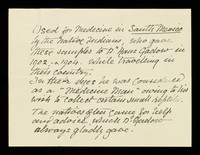 Used for Medicine in South Mexico
by the Native Indians, who gave
these samples to Dr Hans Gadow in
1902 - 1904. while travelling in
their Country.
In those days he was considered
as a "Medicine Man" owing to his
wish to collect certain small reptiles.
The natives often came for help
and advice which Dr Gadow
always gladly gave.